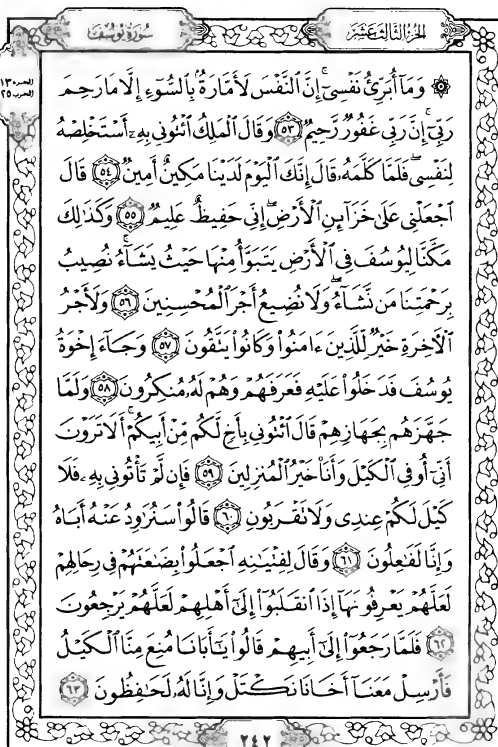 الجزء الثالث عشر
سورة يوسف
الجزء ١٣
الحزب ٢٥
۞ وَمَآ أُبَرِّئُ نَفْسِىٓ ۚ إِنَّ ٱلنَّفْسَ لَأَمَّارَةُۢ بِٱلسُّوٓءِ إِلَّا مَا رَحِمَ
رَبِّىٓ ۚ إِنَّ رَبِّى غَفُورٌ رَّحِيمٌ ٥٣ وَقَالَ ٱلْمَلِكُ ٱئْتُونِى بِهِۦٓ أَسْتَخْلِصْهُ
لِنَفْسِى ۖ فَلَمَّا كَلَّمَهُۥ قَالَ إِنَّكَ ٱلْيَوْمَ لَدَيْنَا مَكِينٌ أَمِينٌ ٥٤ قَالَ
ٱجْعَلْنِى عَلَىٰ خَزَآئِنِ ٱلْأَرْضِ ۖ إِنِّى حَفِيظٌ عَلِيمٌ ٥٥ وَكَذَٰلِكَ
مَكَّنَّا لِيُوسُفَ فِى ٱلْأَرْضِ يَتَبَوَّأُ مِنْهَا حَيْثُ يَشَآءُ ۚ نُصِيبُ
بِرَحْمَتِنَا مَن نَّشَآءُ ۖ وَلَا نُضِيعُ أَجْرَ ٱلْمُحْسِنِينَ ٥٦ وَلَأَجْرُ
ٱلْءَاخِرَةِ خَيْرٌ لِّلَّذِينَ ءَامَنُوا۟ وَكَانُوا۟ يَتَّقُونَ ٥٧ وَجَآءَ إِخْوَةُ
يُوسُفَ فَدَخَلُوا۟ عَلَيْهِ فَعَرَفَهُمْ وَهُمْ لَهُۥ مُنكِرُونَ ٥٨ وَلَمَّا
جَهَّزَهُم بِجَهَازِهِمْ قَالَ ٱئْتُونِى بِأَخٍ لَّكُم مِّنْ أَبِيكُمْ ۚ أَلَا تَرَوْنَ
أَنِّىٓ أُوفِى ٱلْكَيْلَ وَأَنَا۠ خَيْرُ ٱلْمُنزِلِينَ ٥٩ فَإِن لَّمْ تَأْتُونِى بِهِۦ فَلَا
كَيْلَ لَكُمْ عِندِى وَلَا تَقْرَبُونِ ٦٠ قَالُوا۟ سَنُرَٰوِدُ عَنْهُ أَبَاهُ
وَإِنَّا لَفَٰعِلُونَ ٦١ وَقَالَ لِفِتْيَٰنِهِ ٱجْعَلُوا۟ بِضَٰعَتَهُمْ فِى رِحَالِهِمْ
لَعَلَّهُمْ يَعْرِفُونَهَآ إِذَا ٱنقَلَبُوٓا۟ إِلَىٰٓ أَهْلِهِمْ لَعَلَّهُمْ يَرْجِعُونَ
٦٢ فَلَمَّا رَجَعُوٓا۟ إِلَىٰٓ أَبِيهِمْ قَالُوا۟ يَٰٓأَبَانَا مُنِعَ مِنَّا ٱلْكَيْلُ
فَأَرْسِلْ مَعَنَآ أَخَانَا نَكْتَلْ وَإِنَّا لَهُۥ لَحَٰفِظُونَ ٦٣
٢٤٢